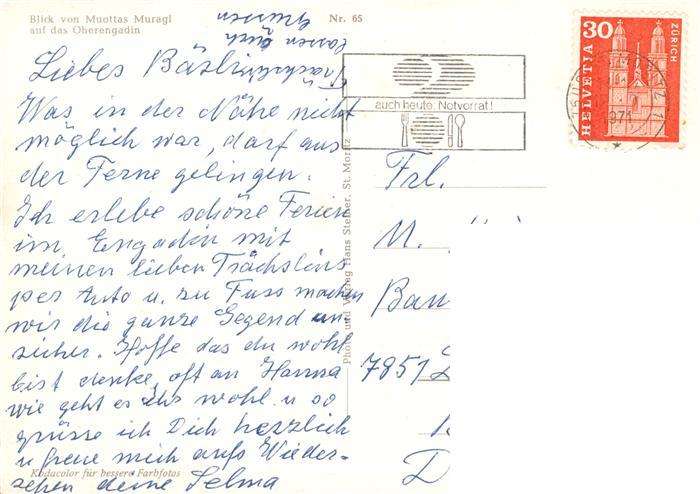 Blick von Muottas Muragl
auf das Oberengadin
Nr. 65
lassen Euch
Grüssen
Liebes Bäsli
Was in der Nähe nicht
möglich war, darf aus
der Ferne gelingen.
Ich erlebe schöne Ferien
im Engadin mit
meinen lieben Trächslins
per Auto u. zu Fuss machen
wir die ganze Gegend un
sicher. Hoffe das du wohl
bist denke oft an Hanna
wie geht es ihr wohl u so
grüsse ich Dich herzlich
u freue mich aufs Wieder-
sehen deine Selma
Kodacolor für bessere Farbfotos
Photo und Verlag Hans Steiner, St. Moritz
auch heute: Notvorrat!
HELVETIA
30
ZÜRICH
1971
Frl.
M.
Ban
7851
D